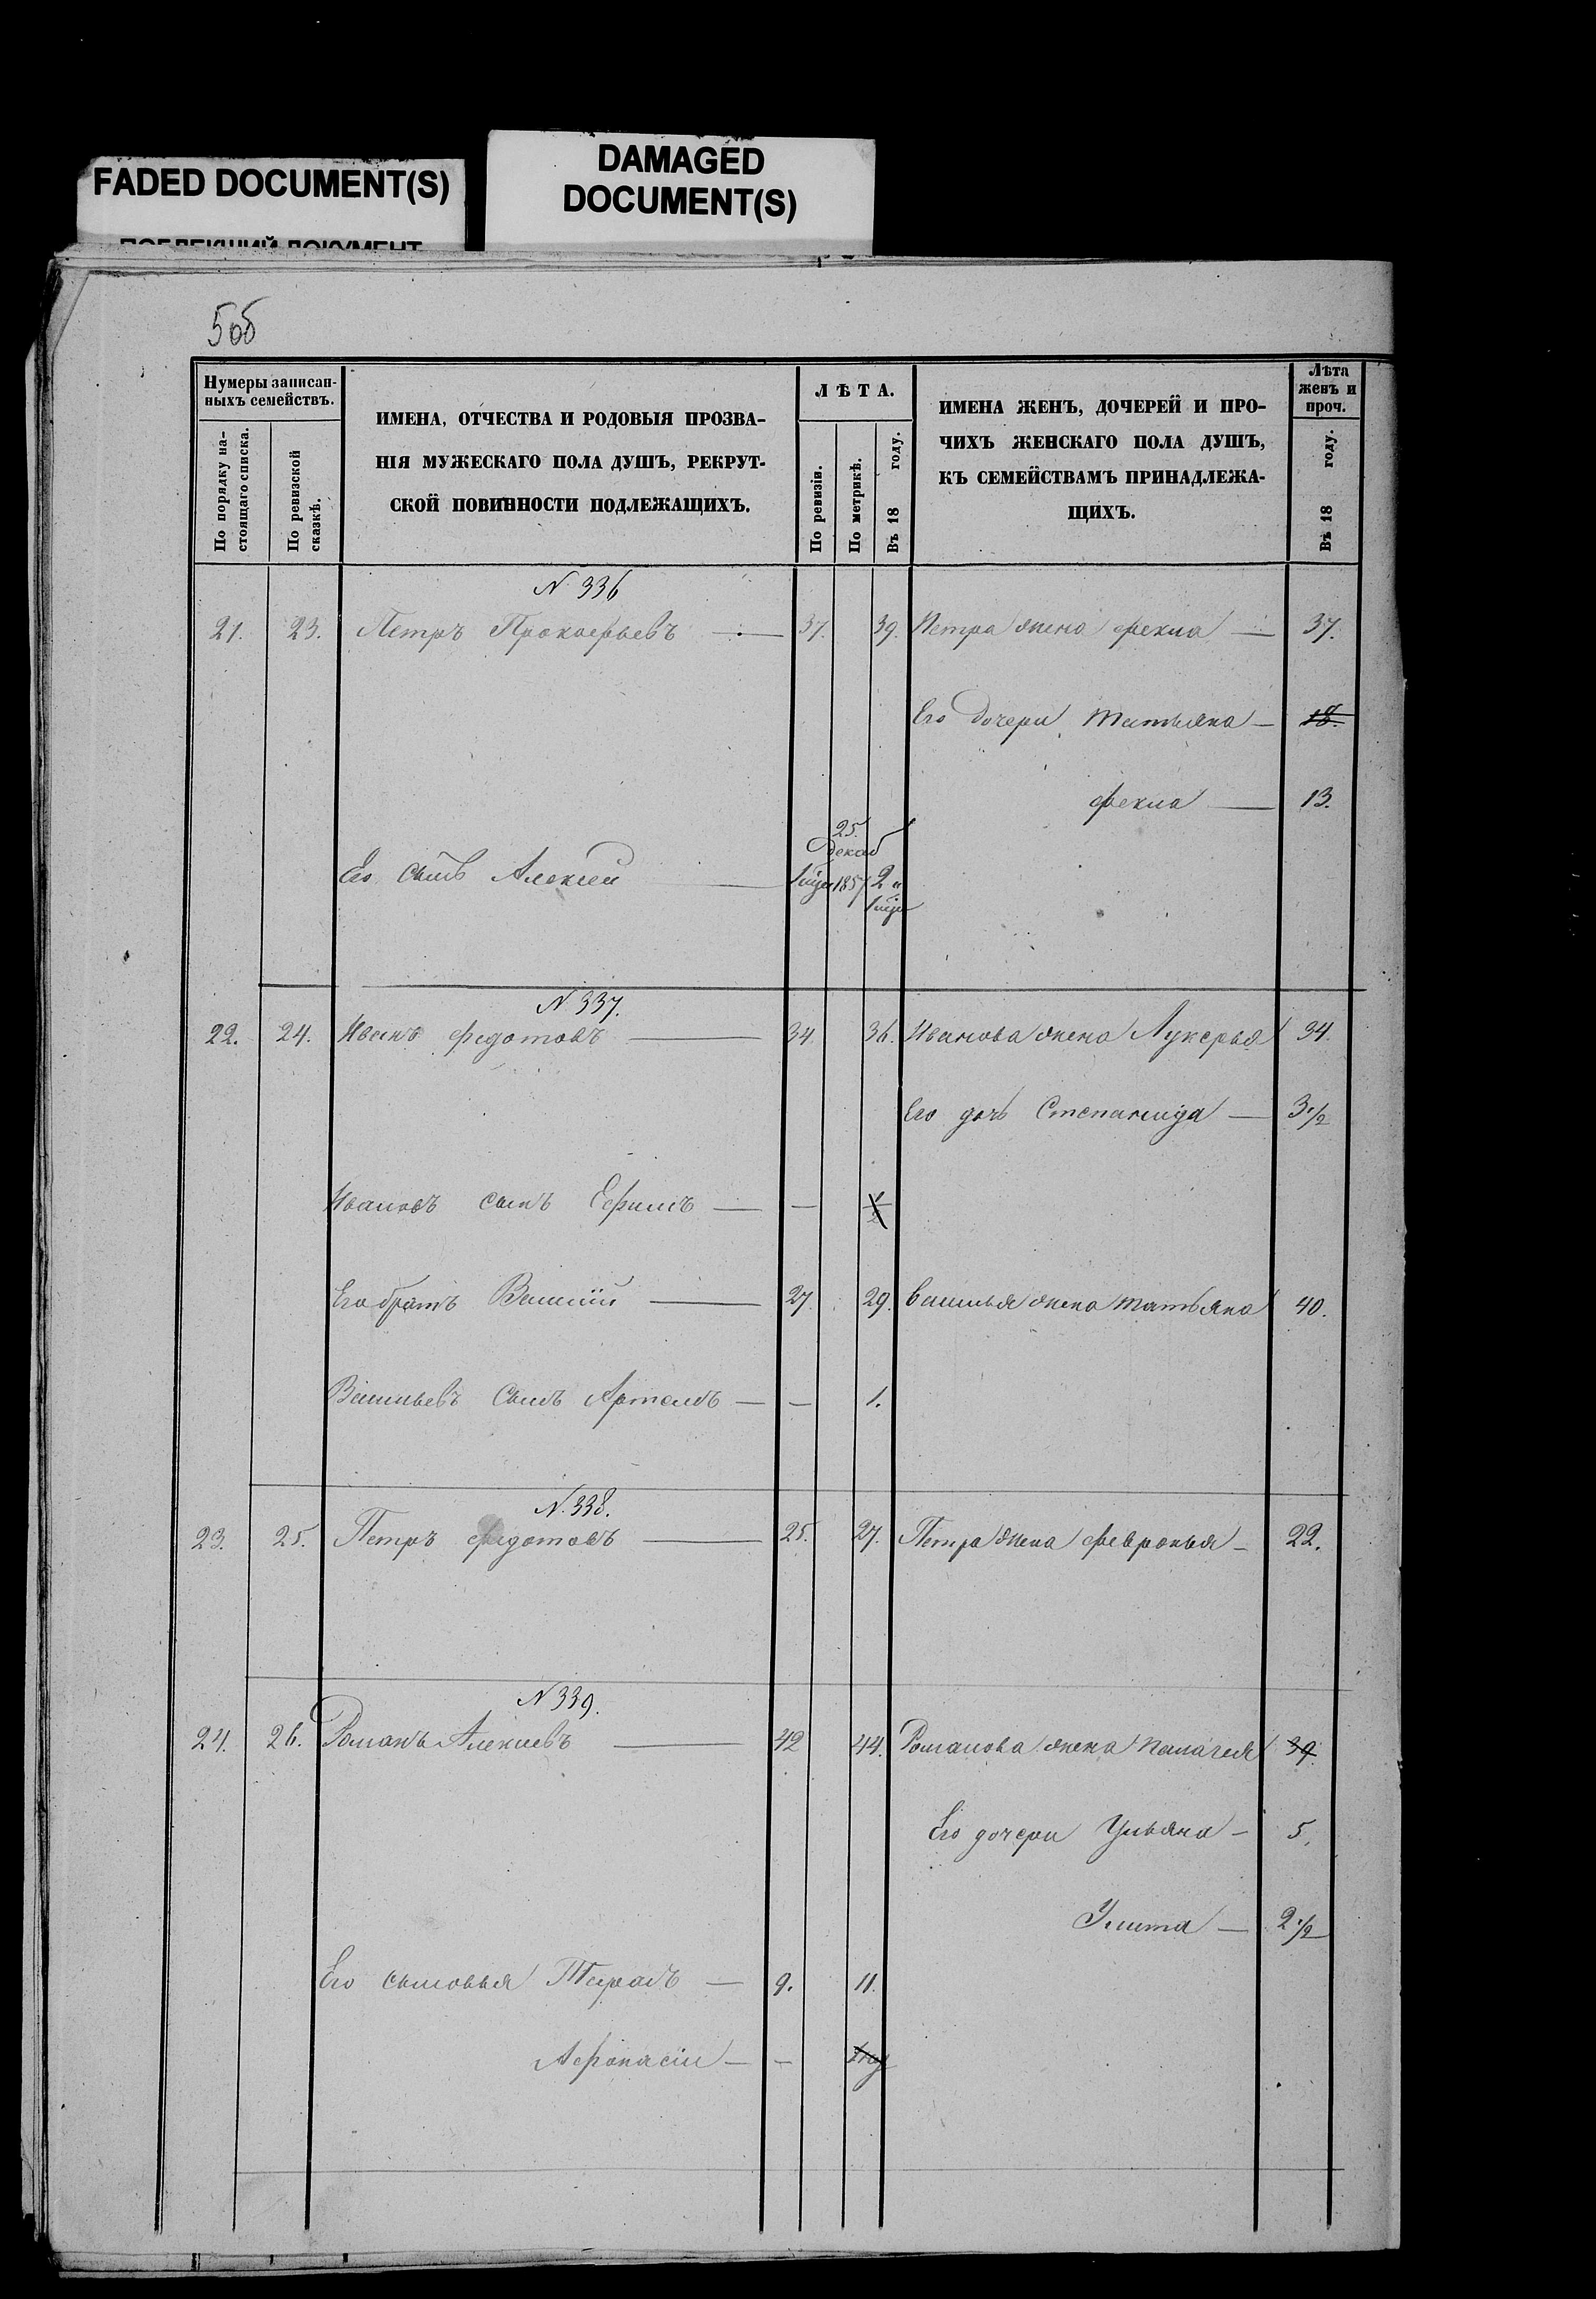 FADED DOCUMENT(S)
DAMAGED
DOCUMENT(S)
ПОБЛЕКШИЙ ДОКУМЕНТ
5об
Нумеры записан-
ныхъ семействъ.
По порядку на-
стоящаго списка.
По ревизской
сказкѣ.
ИМЕНА, ОТЧЕСТВА И РОДОВЫЯ ПРОЗВА-
НІЯ МУЖЕСКАГО ПОЛА ДУШЪ, РЕКРУТ-
СКОЙ ПОВИННОСТИ ПОДЛЕЖАЩИХЪ.
ЛѢТА.
По ревизіи.
По метрикѣ.
Въ 18 году.
ИМЕНА ЖЕНЪ, ДОЧЕРЕЙ И ПРО-
ЧИХЪ ЖЕНСКАГО ПОЛА ДУШЪ,
КЪ СЕМЕЙСТВАМЪ ПРИНАДЛЕЖА-
ЩИХЪ.
Лѣта
женъ и
проч.
Въ 18 году.
N 336
21. 23. Петръ Прокофьевъ — 37. 39. Петра жена фекла — 37.
Его дочери Татьяна — 18.
фекла — 13.
25
декаб
Его сынъ Алексей — 1857 2 и
N 337.
22. 24. Иванъ федотовъ — 34. 36. Иванова жена Лукерья 34.
Его дочь Степанида — 3 1/2
Ивановъ сынъ Ефимъ — —
Его братъ Василій — 27. 29. Василья жена татьяна 40.
Васильевъ сынъ Артемъ — — 1.
N. 338.
23. 25. Петръ федотовъ — 25. 27. Петра жена февронья — 22.
N 339.
24. 26. Романъ Алексевъ — 42 44. Романова жена Палагея 39.
Его дочери Ульяна — 5.
Улита — 2 1/2
Его сыновья — 9. 11.
Афонасіи — —